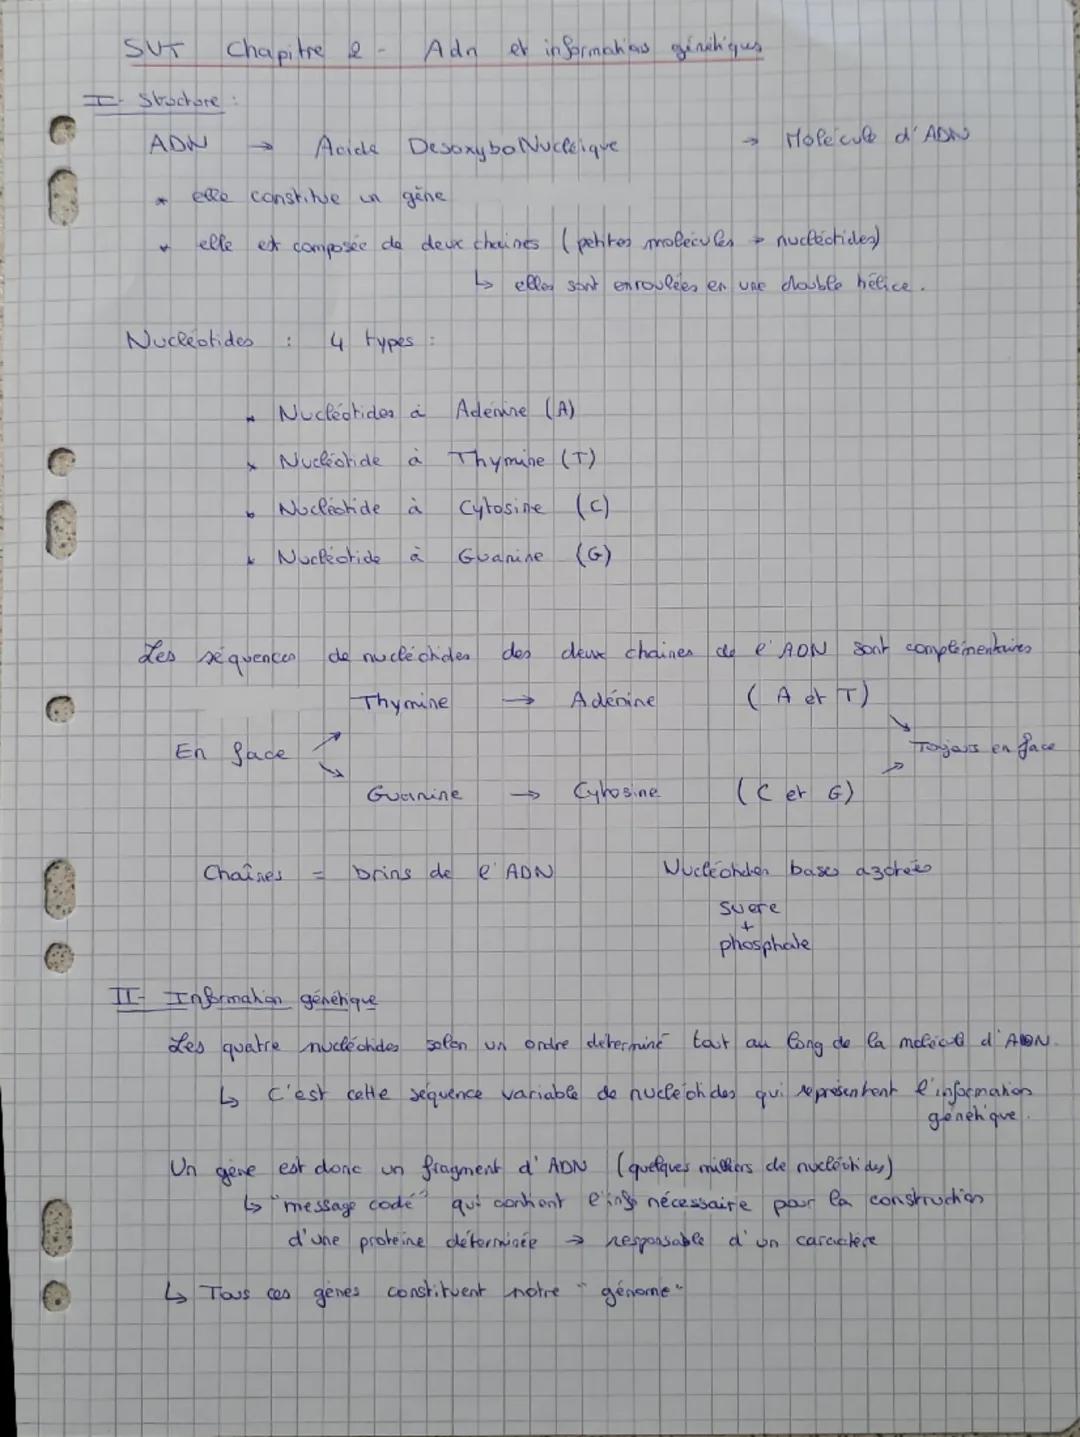 SVT Chapitre 2 - Adn et informations génétiques
I- Structure :
ADN → Acide DesoxyboNucléique → Molécule d'ADN
* elle constitue un gène
* elle est composée de deux chaines (petites molécules → nucléotides)
↳ elles sont enroulées en une double hélice.
Nucléotides : 4 types :
* Nucléotides à Adénine (A)
* Nucléotide à Thymine (T)
* Nucléotide à Cytosine (C)
* Nucléotide à Guanine (G)
Les séquences de nucléotides des deux chaines de l'ADN sont complémentaires
Thymine → Adénine (A et T)
En face Toujours en face
Guanine → Cytosine (C et G)
Chaînes = brins de l'ADN Nucléotides bases azotées
sucre
+
phosphate
II- Information génétique
Les quatre nucléotides selon un ordre déterminé tout au long de la molécule d'ADN.
↳ C'est cette séquence variable de nucléotides qui représentent l'information
génétique.
Un gène est donc un fragment d'ADN (quelques milliers de nucléotides)
↳ "message codé" qui contient l'info nécessaire pour la construction
d'une proteine déterminée → responsable d'un caractère
↳ Tous ces gènes constituent notre "génome"